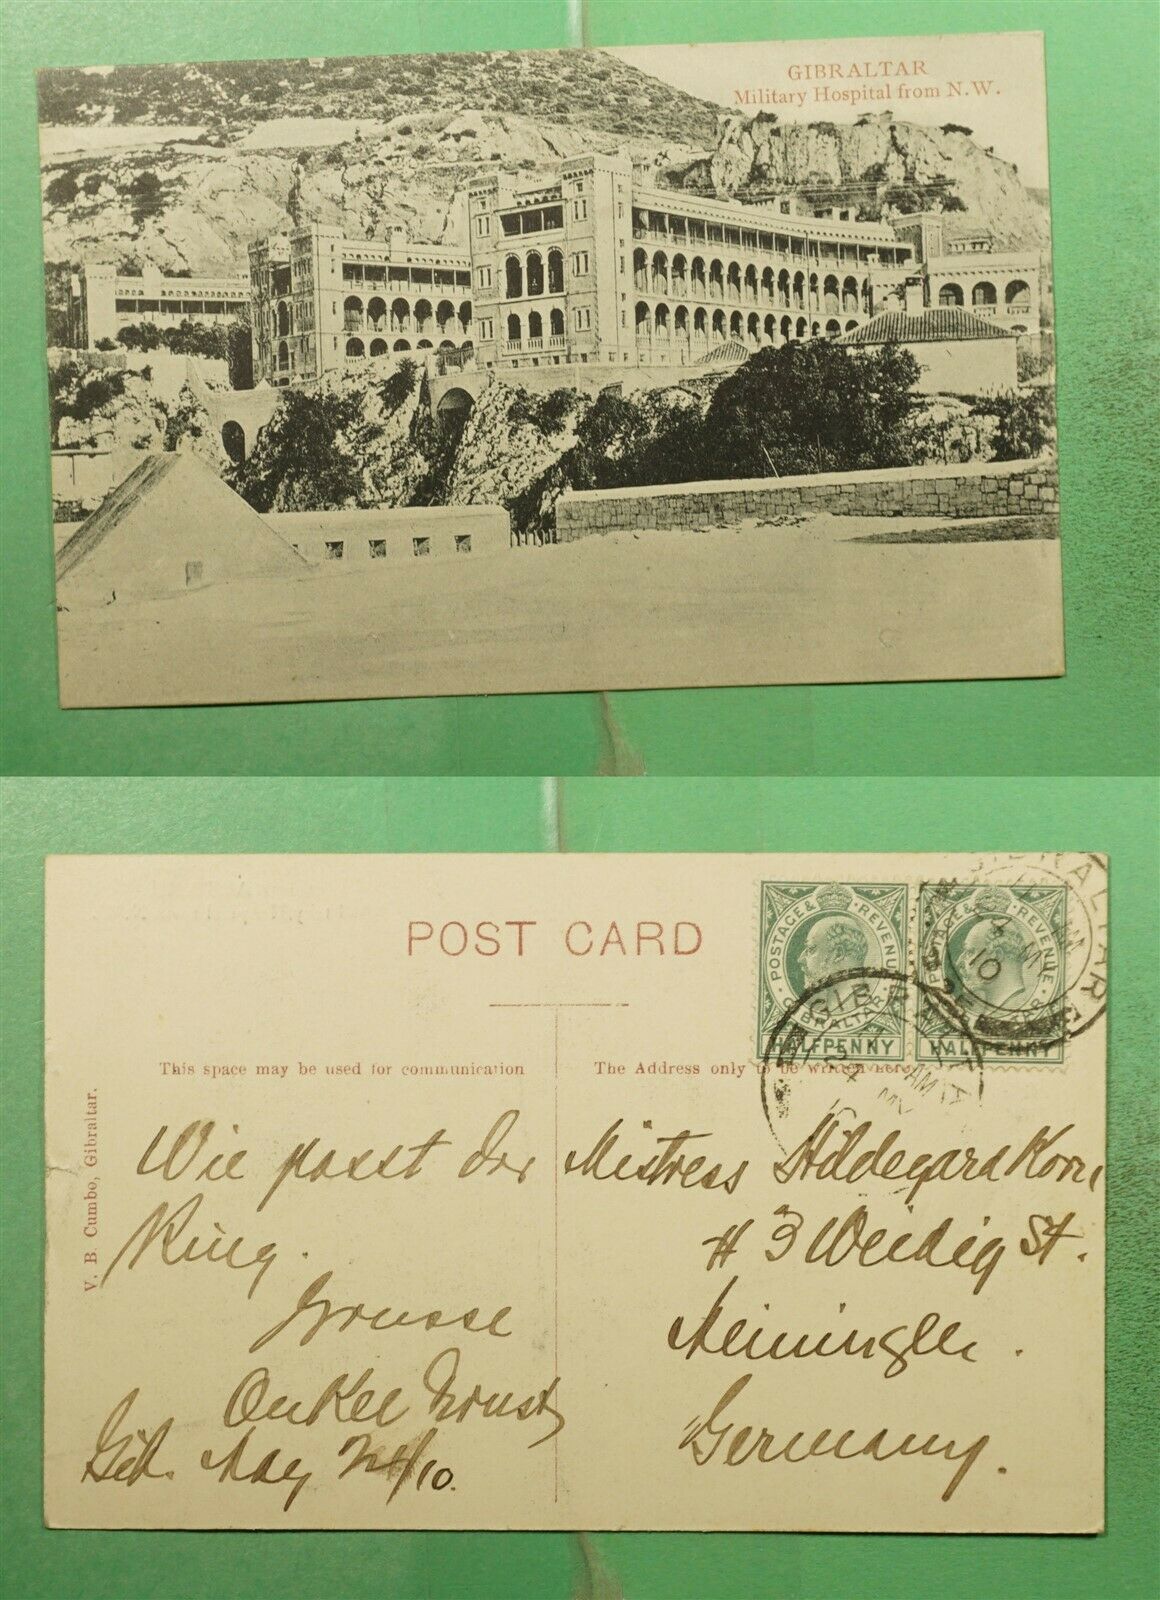 GIBRALTAR
Military Hospital from N.W.
POST CARD
This space may be used for communication
The Address only to be written here
V. B. Cumbo, Gibraltar.
POSTAGE & REVENUE
GIBRALTAR
HALFPENNY
POSTAGE & REVENUE
GIBRALTAR
HALFPENNY
GIBRALTAR
10
Wie passt der
Ring.
Grüsse
Onkel Ernst
Gib. May 24/10.
Mistress Hildegard Korn
# 3 Weidig St.
Meiningen.
Germany.